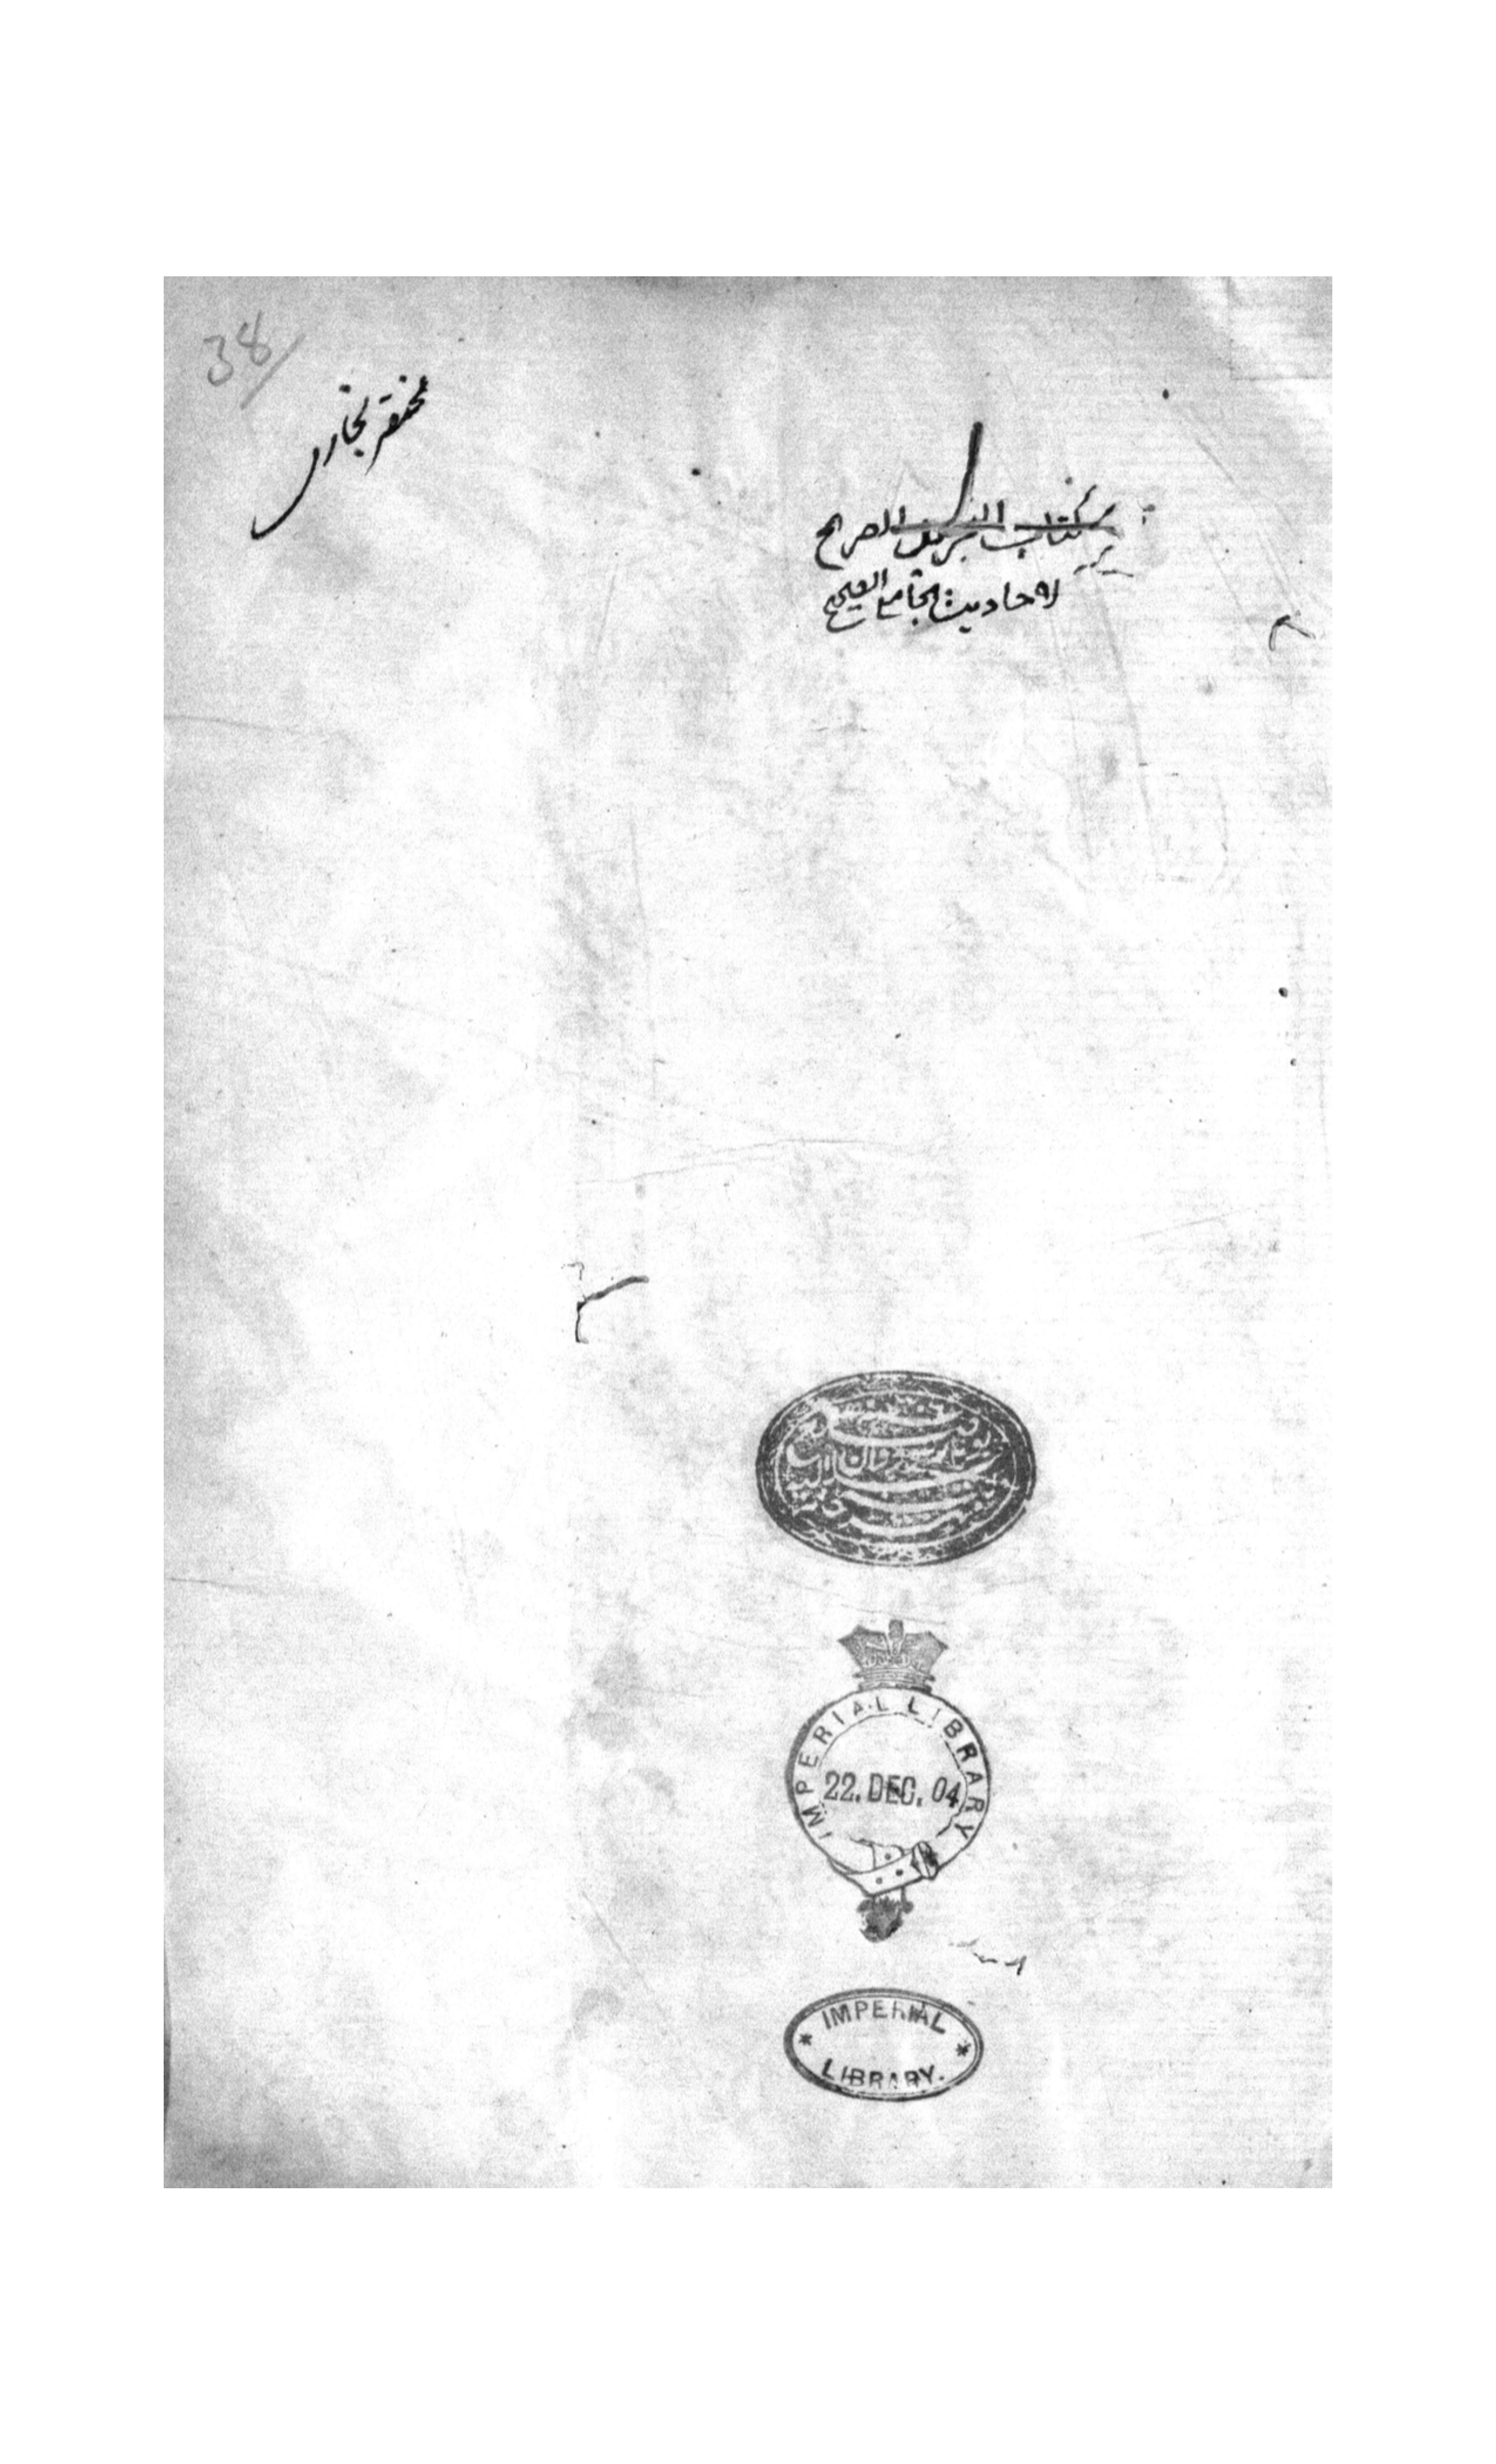 38
مختصر بخاری
كتاب التجريد الصريح
لاحاديث الجامع الصحيح
IMPERIAL LIBRARY
22. DEC. 04
IMPERIAL
LIBRARY.